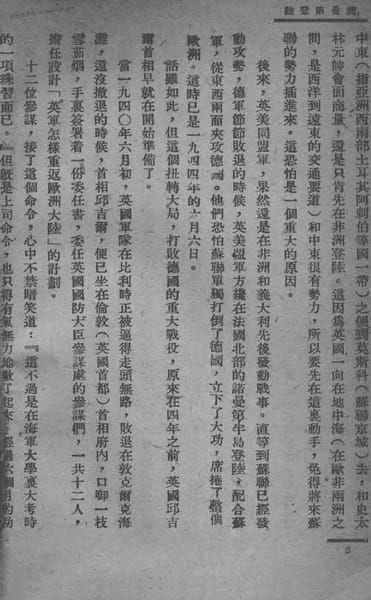 陸登第曼諾
中東（指亞洲西南部土耳其阿剌伯等國一帶）之便到莫斯科（蘇聯京城）去，和史太
林元帥會面商量，還是只肯先在非洲登陸。這因爲英國一向在地中海（在歐非兩洲之
間，是西洋到遠東的交通要道）和中東很有勢力，所以要先在這裏動手，免得將來蘇
聯的勢力插進來。這恐怕是一個重大的原因。
後來，英美同盟軍，果然還是在非洲和義大利先後發動戰事。直等到蘇聯已經發
動攻勢，德軍節節敗退的時候，英美盟軍方纔在法國北部的諾曼第半島登陸，配合蘇
軍，從東西兩面夾攻德國。他們恐怕蘇聯單獨打倒了德國，立下了大功，席捲了整個
歐洲。這時已是一九四四年的六月六日。
話雖如此，但這個扭轉大局，打敗德國的重大戰役，原來在四年之前，英國邱吉
爾首相早就在開始準備了。
當一九四〇年六月初，英國軍隊在比利時正被逼得走頭無路，敗退在敦克爾克海
灘，還沒撤退的時候，首相邱吉爾，便已坐在倫敦（英國首都）首相府內，口啣一枝
雪茄烟，手裏簽署着一份委任書，委任英國國防大臣參謀處的參謀們，一共十二人，
擔任設計「英軍怎樣重返歐洲大陸」的計劃。
十二位參謀，接了這個命令，心中不禁暗笑道：『這不過是在海軍大學裏大考時
的一項練習而已。』但既是上司命令，也只得有氣無力地數了起來。經過六個月的功
2